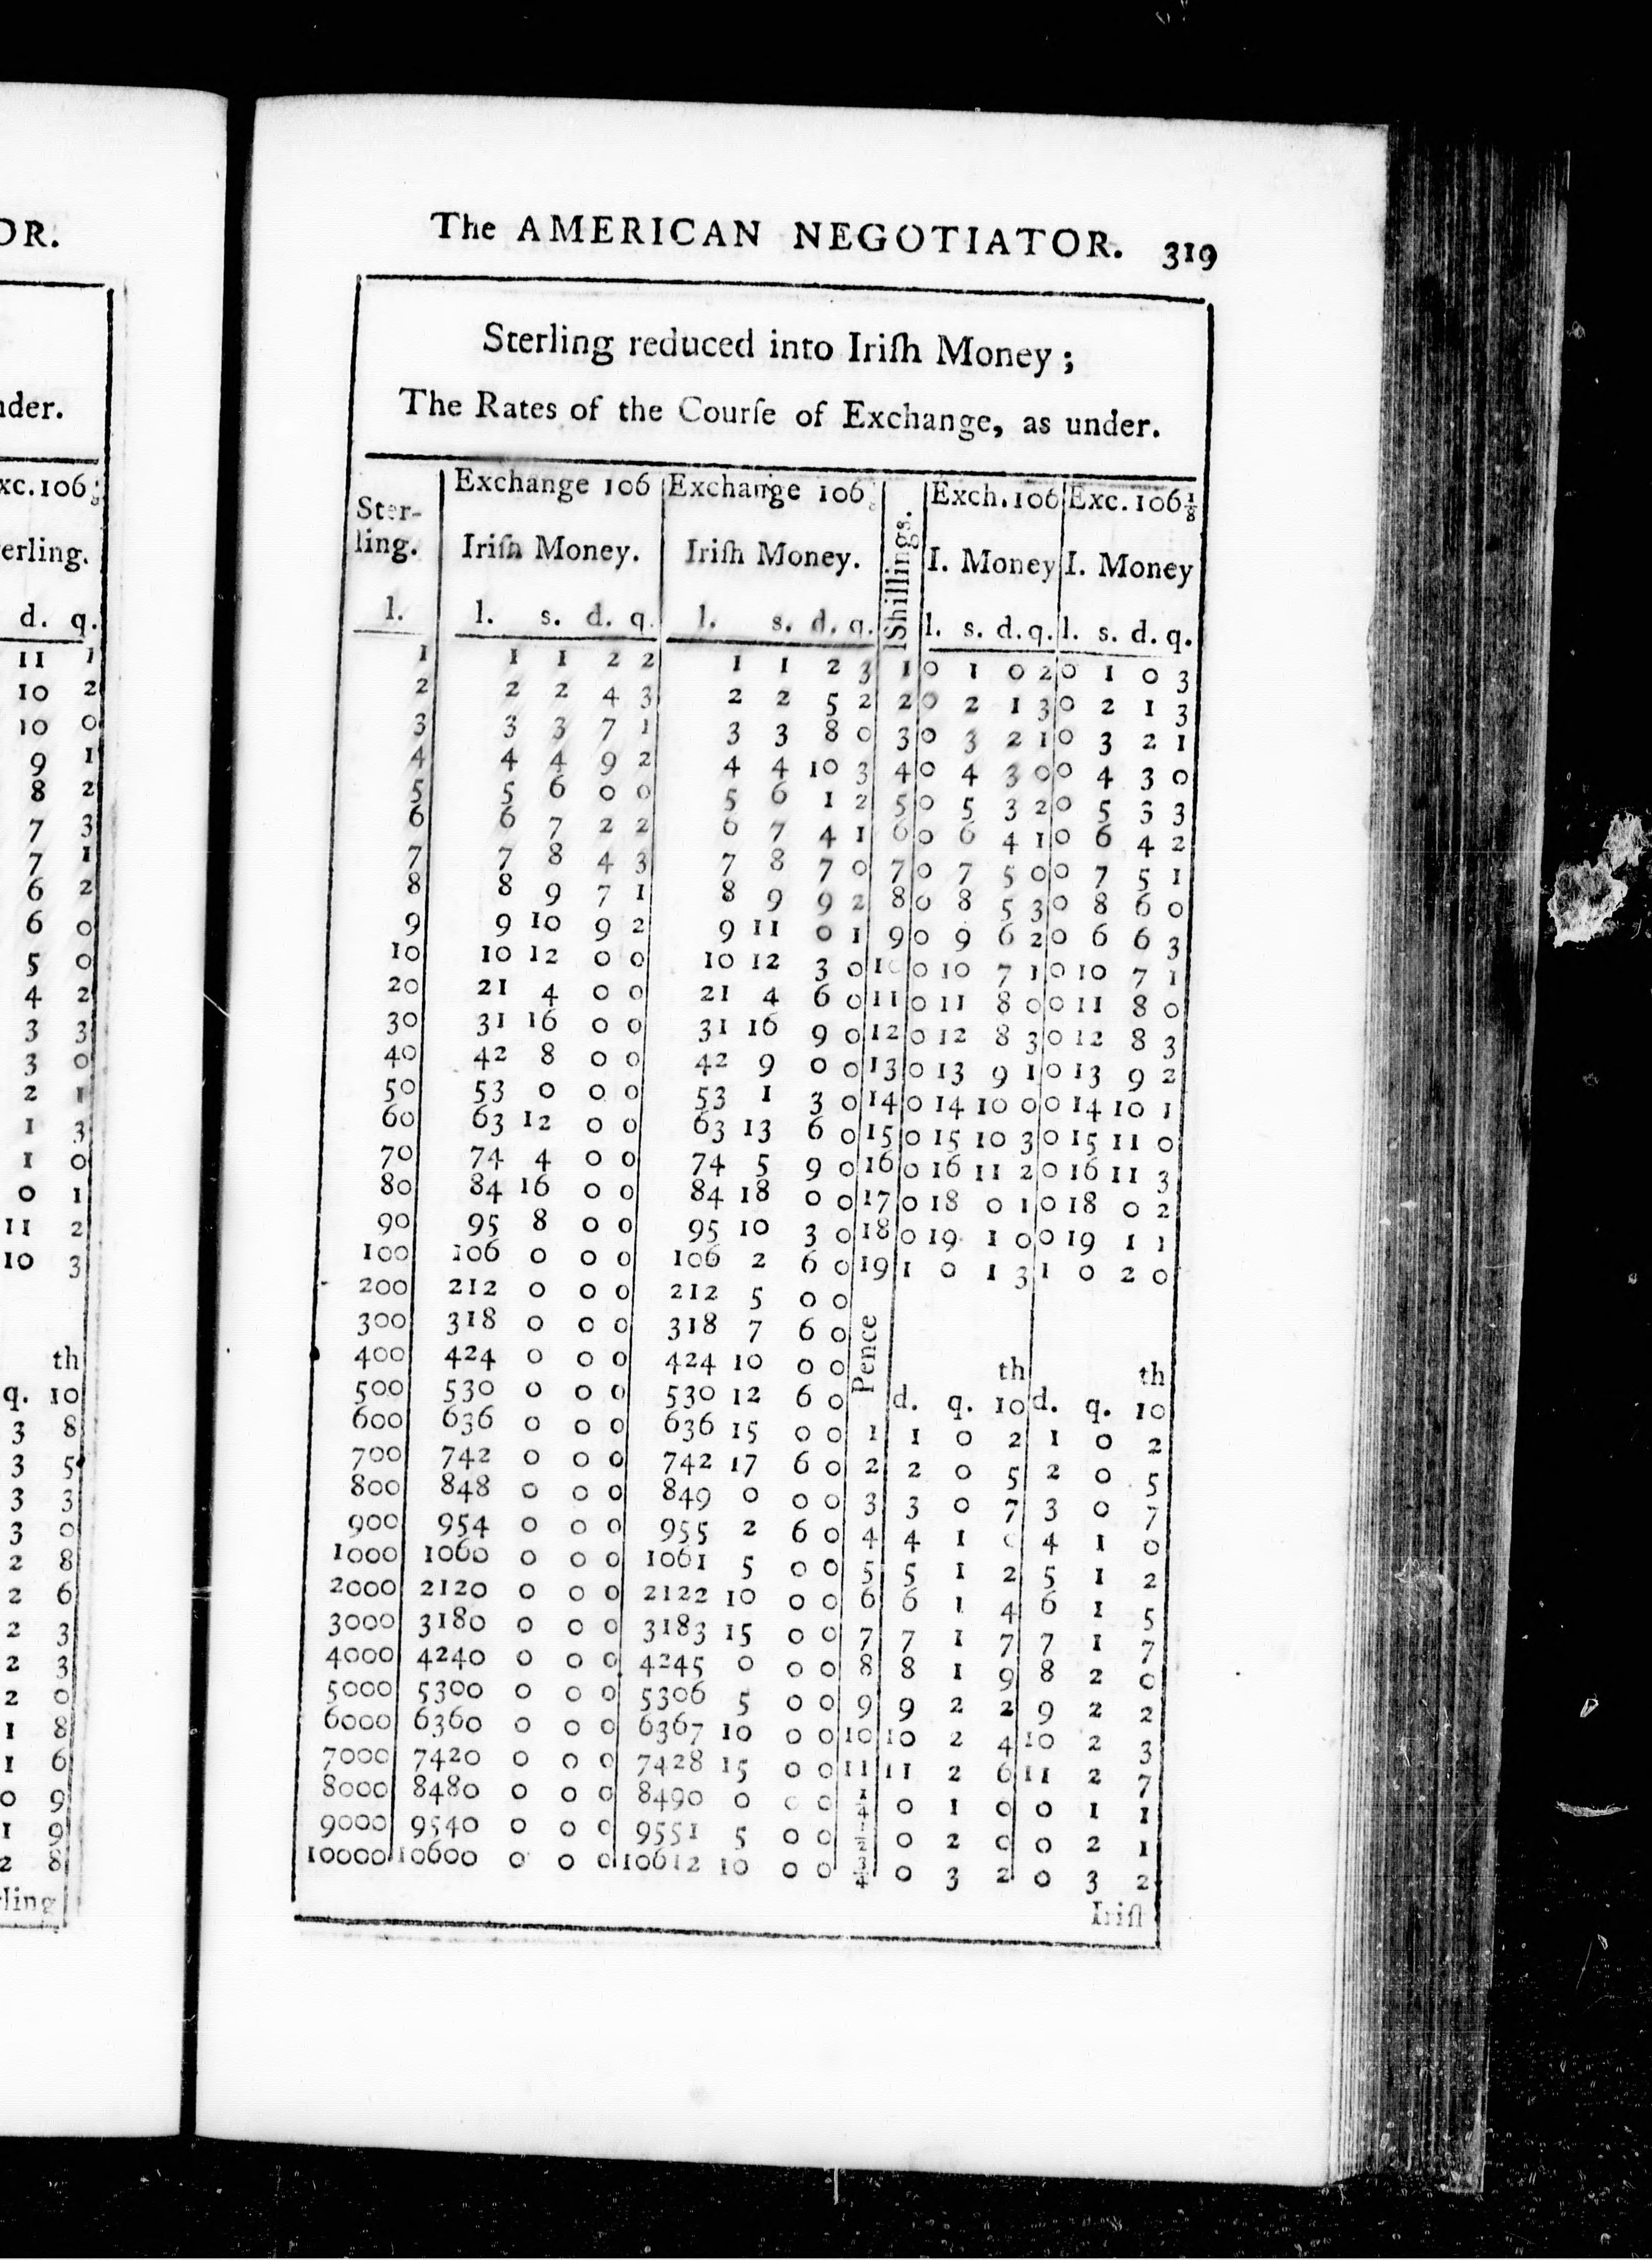 OR.
nder.
xc. 106
erling.
d. q.
11 1
10 2
10 0
9 1
8 2
7 3
7 1
6 2
6 0
5 0
4 2
3 3
3 0
2 1
1 3
1 0
0 1
11 2
10 3
th
q. 10
3 8
3 5
3 3
3 0
2 8
2 6
2 3
2 3
2 0
1 8
1 6
0 9
1 9
2 8
rling
The AMERICAN NEGOTIATOR. 319
Sterling reduced into Iriſh Money;
The Rates of the Courſe of Exchange, as under.
Ster- Exchange 106 Exchange 106 Shillings. Exch. 106 Exc. 106⅛
ling. Iriſh Money. Iriſh Money. I. Money I. Money
l. l. s. d. q. l. s. d. q. l. s. d. q. l. s. d. q.
1 1 1 2 2 1 1 2 3 1 0 1 0 2 0 1 0 3
2 2 2 4 3 2 2 5 2 2 0 2 1 3 0 2 1 3
3 3 3 7 1 3 3 8 0 3 0 3 2 1 0 3 2 1
4 4 4 9 2 4 4 10 3 4 0 4 3 0 0 4 3 0
5 5 6 0 0 5 6 1 2 5 0 5 3 2 0 5 3 3
6 6 7 2 2 6 7 4 1 6 0 6 4 1 0 6 4 2
7 7 8 4 3 7 8 7 0 7 0 7 5 0 0 7 5 1
8 8 9 7 1 8 9 9 2 8 0 8 5 3 0 8 6 0
9 9 10 9 2 9 11 0 1 9 0 9 6 2 0 6 6 3
10 10 12 0 0 10 12 3 0 10 0 10 7 1 0 10 7 1
20 21 4 0 0 21 4 6 0 11 0 11 8 0 0 11 8 0
30 31 16 0 0 31 16 9 0 12 0 12 8 3 0 12 8 3
40 42 8 0 0 42 9 0 0 13 0 13 9 1 0 13 9 2
50 53 0 0 0 53 1 3 0 14 0 14 10 0 0 14 10 1
60 63 12 0 0 63 13 6 0 15 0 15 10 3 0 15 11 0
70 74 4 0 0 74 5 9 0 16 0 16 11 2 0 16 11 3
80 84 16 0 0 84 18 0 0 17 0 18 0 1 0 18 0 2
90 95 8 0 0 95 10 3 0 18 0 19 1 0 0 19 1 1
100 106 0 0 0 106 2 6 0 19 1 0 1 3 1 0 2 0
200 212 0 0 0 212 5 0 0
300 318 0 0 0 318 7 6 0 Pence
400 424 0 0 0 424 10 0 0 th th
500 530 0 0 0 530 12 6 0 d. q. 10 d. q. 10
600 636 0 0 0 636 15 0 0 1 1 0 2 1 0 2
700 742 0 0 0 742 17 6 0 2 2 0 5 2 0 5
800 848 0 0 0 849 0 0 0 3 3 0 7 3 0 7
900 954 0 0 0 955 2 6 0 4 4 1 0 4 1 0
1000 1060 0 0 0 1061 5 0 0 5 5 1 2 5 1 2
2000 2120 0 0 0 2122 10 0 0 6 6 1 4 6 1 5
3000 3180 0 0 0 3183 15 0 0 7 7 1 7 7 1 7
4000 4240 0 0 0 4245 0 0 0 8 8 1 9 8 2 0
5000 5300 0 0 0 5306 5 0 0 9 9 2 2 9 2 2
6000 6360 0 0 0 6367 10 0 0 10 10 2 4 10 2 3
7000 7420 0 0 0 7428 15 0 0 11 11 2 6 11 2 7
8000 8480 0 0 0 8490 0 0 0 ¼ 0 1 0 0 1 1
9000 9540 0 0 0 9551 5 0 0 ½ 0 2 0 0 2 1
10000 10600 0 0 0 10612 10 0 0 ¾ 0 3 2 0 3 2
Iriſh